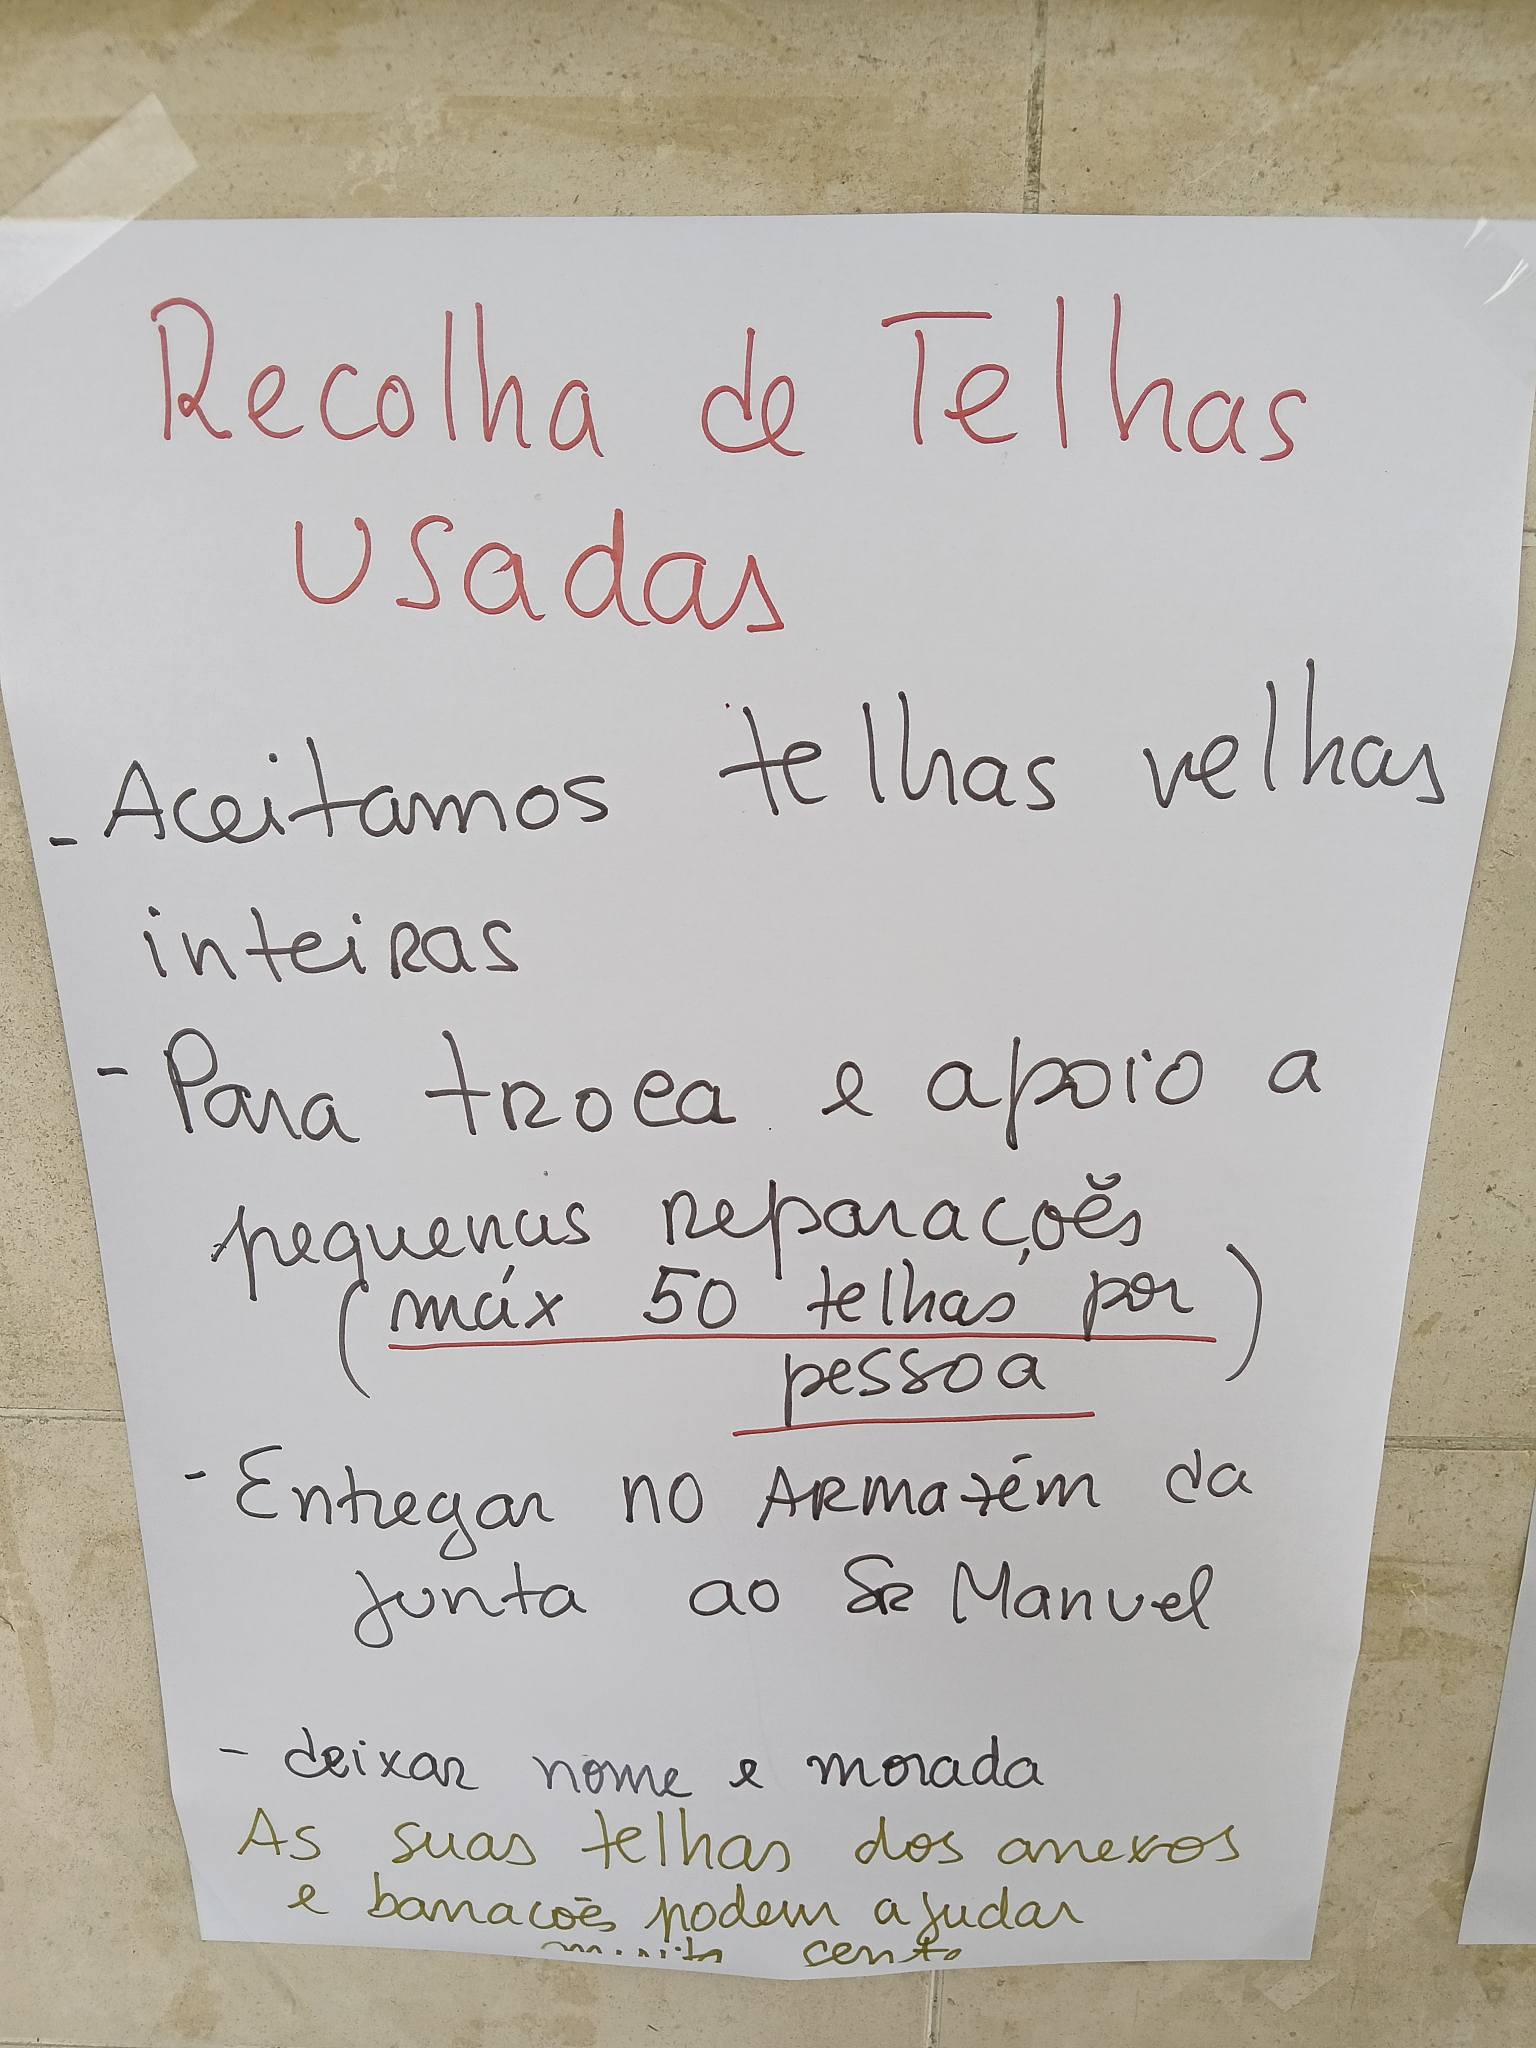 Recolha de Telhas
usadas
- Aceitamos telhas velhas
inteiras
- Para troca e apoio a
pequenas reparações
(máx 50 telhas por)
pessoa
- Entregar no Armazém da
Junta ao Sr Manuel
- deixar nome e morada
As suas telhas dos anexos
e barracões podem ajudar
muita